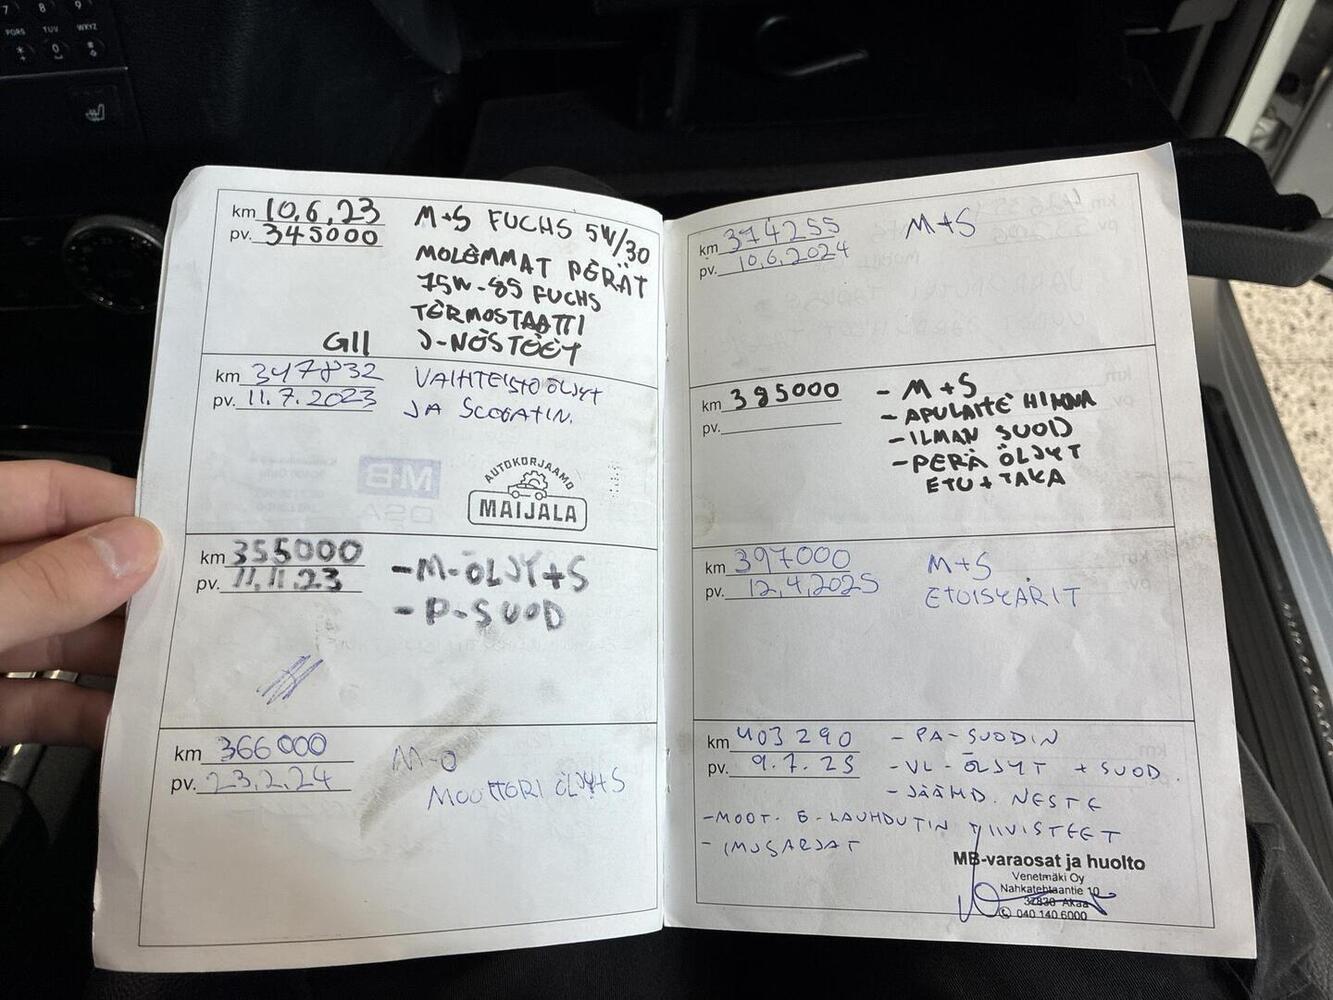 km 10.6.23
pv. 345000
M+S FUCHS 5W/30
MOLEMMAT PERÄT
75W-85 FUCHS
TERMOSTAATTI
J-NESTEET
G11
km 347832
pv. 11.7.2023
VAIHTEISTOÖLJYT
JA SUODATIN.
AUTOKORJAAMO
MAIJALA
km 355000
pv. 11.11.23
-M-ÖLJY+S
-P-SUOD
km 366000
pv. 23.2.24
M-Ö
MOOTTORI ÖLJY+S
km 374255
pv. 10.6.2024
M+S
km 385000
pv.
- M+S
- APULAITE HIHNA
- ILMAN SUOD
- PERÄ ÖLJYT
ETU + TAKA
km 397000
pv. 12.4.2025
M+S
ETOISKARIT
km 403290
pv. 9.7.25
- PA-SUODIN
- VL-ÖLJYT + SUOD.
- JÄÄHD. NESTE
- MOOT. Ö-LAUHDUTIN TIIVISTEET
- IMUSARJAT
MB-varaosat ja huolto
Venetmäki Oy
Nahkatehtaantie 10
37830 Akaa
040 140 6000
7 8 9
PQRS TUV WXYZ
* 0 #
+